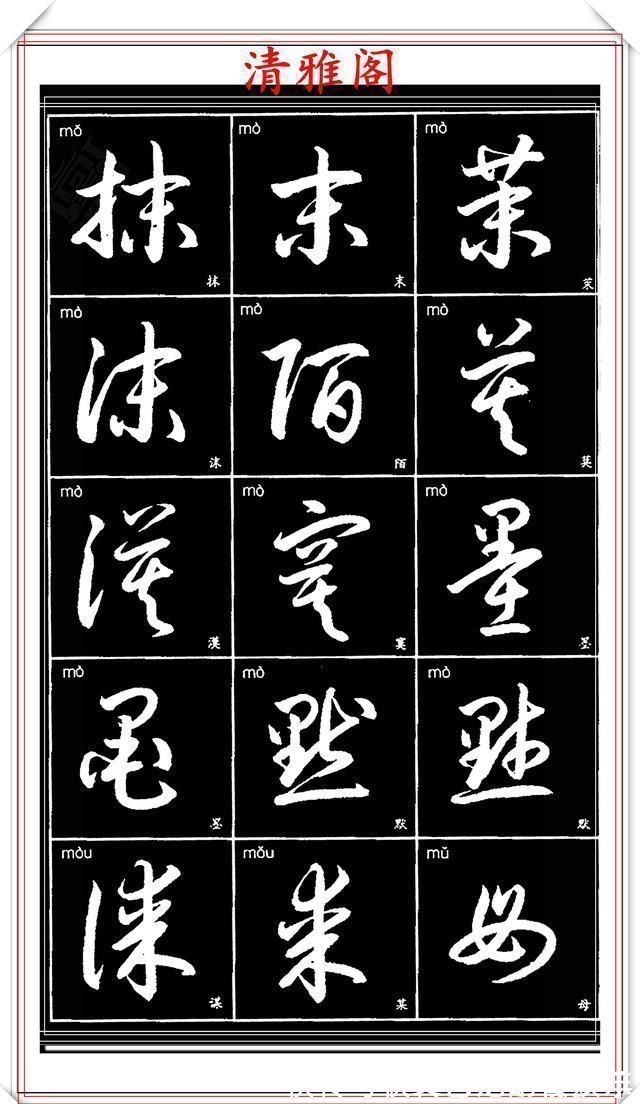 清雅阁
mǒ mò mò
抹 末 茉
抹 末 茉
mò mò mò
沫 陌 莫
沫 陌 莫
mò mò mò
漠 寞 墨
漠 寞 墨
mò mò mò
墨 默 默
墨 默 默
mòu mǒu mǔ
谋 某 母
谋 某 母